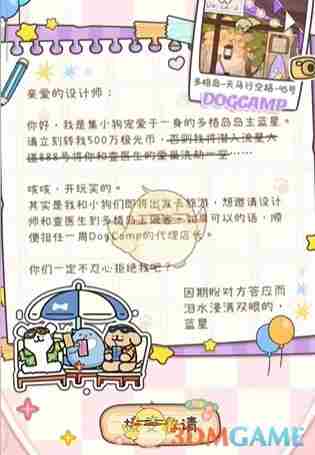 多格岛-天马行空路-95号
DOGCAMP
亲爱的设计师：
你好，我是集小狗宠爱于一身的多格岛岛主蓝星。
请立刻转我500万极光币，否则我将潜入流星大
道888号将你和查医生的家量洗劫一空……
咳咳，开玩笑的。
其实是我和小狗们即将出发去旅游，想邀请设计
师和查医生到多格岛上做客，如果可以的话，顺
便担任一周DogCamp的代理店长。
你们一定不忍心拒绝我吧？
因期盼对方答应而
泪水浸满双眼的，
蓝星
接受邀请
3DMGAME